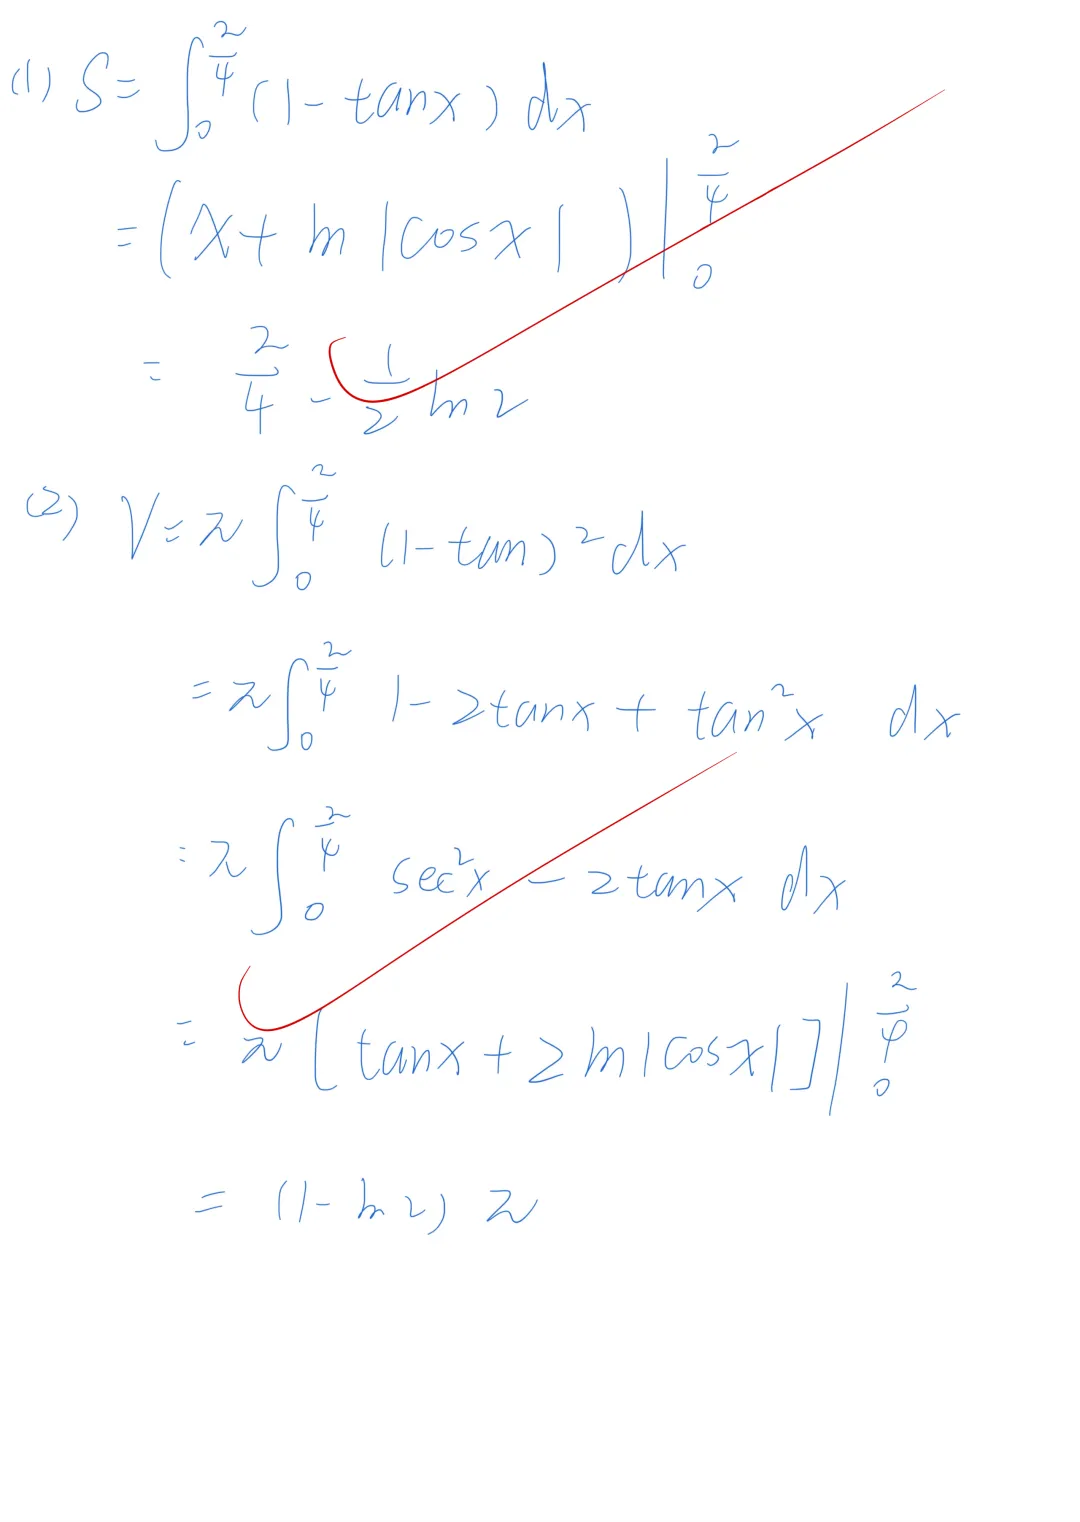 (1) S = ∫₀^{π/4} (1 - tanx) dx
= (x + ln |cosx|) |₀^{π/4}
= π/4 - 1/2 ln2
(2) V = π ∫₀^{π/4} (1 - tan)² dx
= π ∫₀^{π/4} 1 - 2tanx + tan²x dx
= π ∫₀^{π/4} sec²x - 2tanx dx
= π [tanx + 2 ln|cosx|] |₀^{π/4}
= (1 - ln2) π